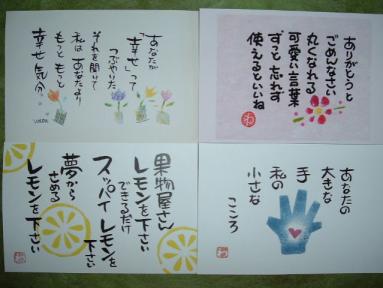 あなたが
「幸せ」って
つぶやいた
それを聞いて
私はあなたより
もっともっと
幸せ気分。
ありがとうと
ごめんなさい
丸くなれる
可愛い言葉
ずっと忘れず
使えるといいね
わ
果物屋さん
レモンを下さい
できるだけ
スッパイレモンを
下さい
夢から
さめる
レモンを下さい
わ
あなたの
大きな
手
私の
小さな
こころ
わ